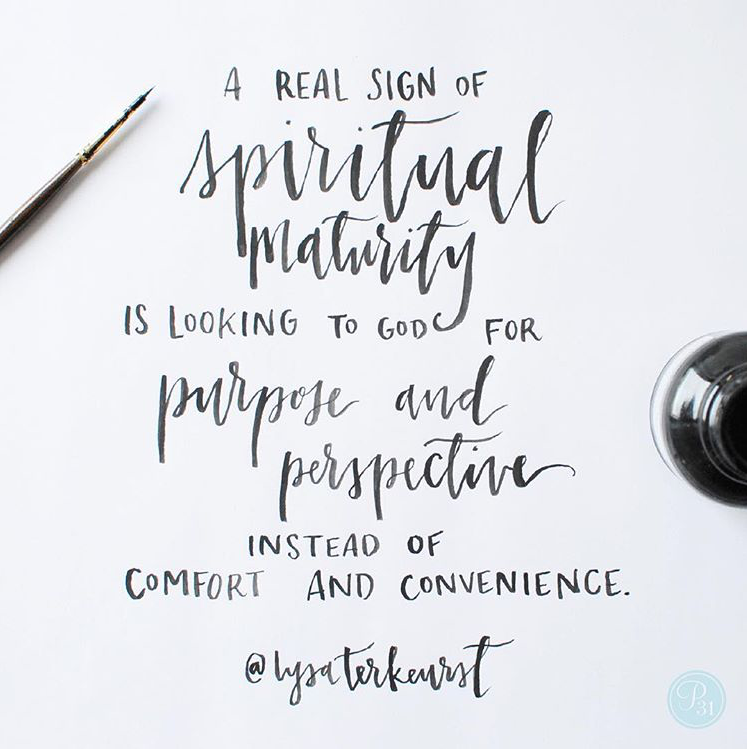 A REAL SIGN OF
spiritual
maturity
IS LOOKING TO GOD FOR
purpose and
perspective
INSTEAD OF
COMFORT AND CONVENIENCE.
@lysaterkeurst
P31